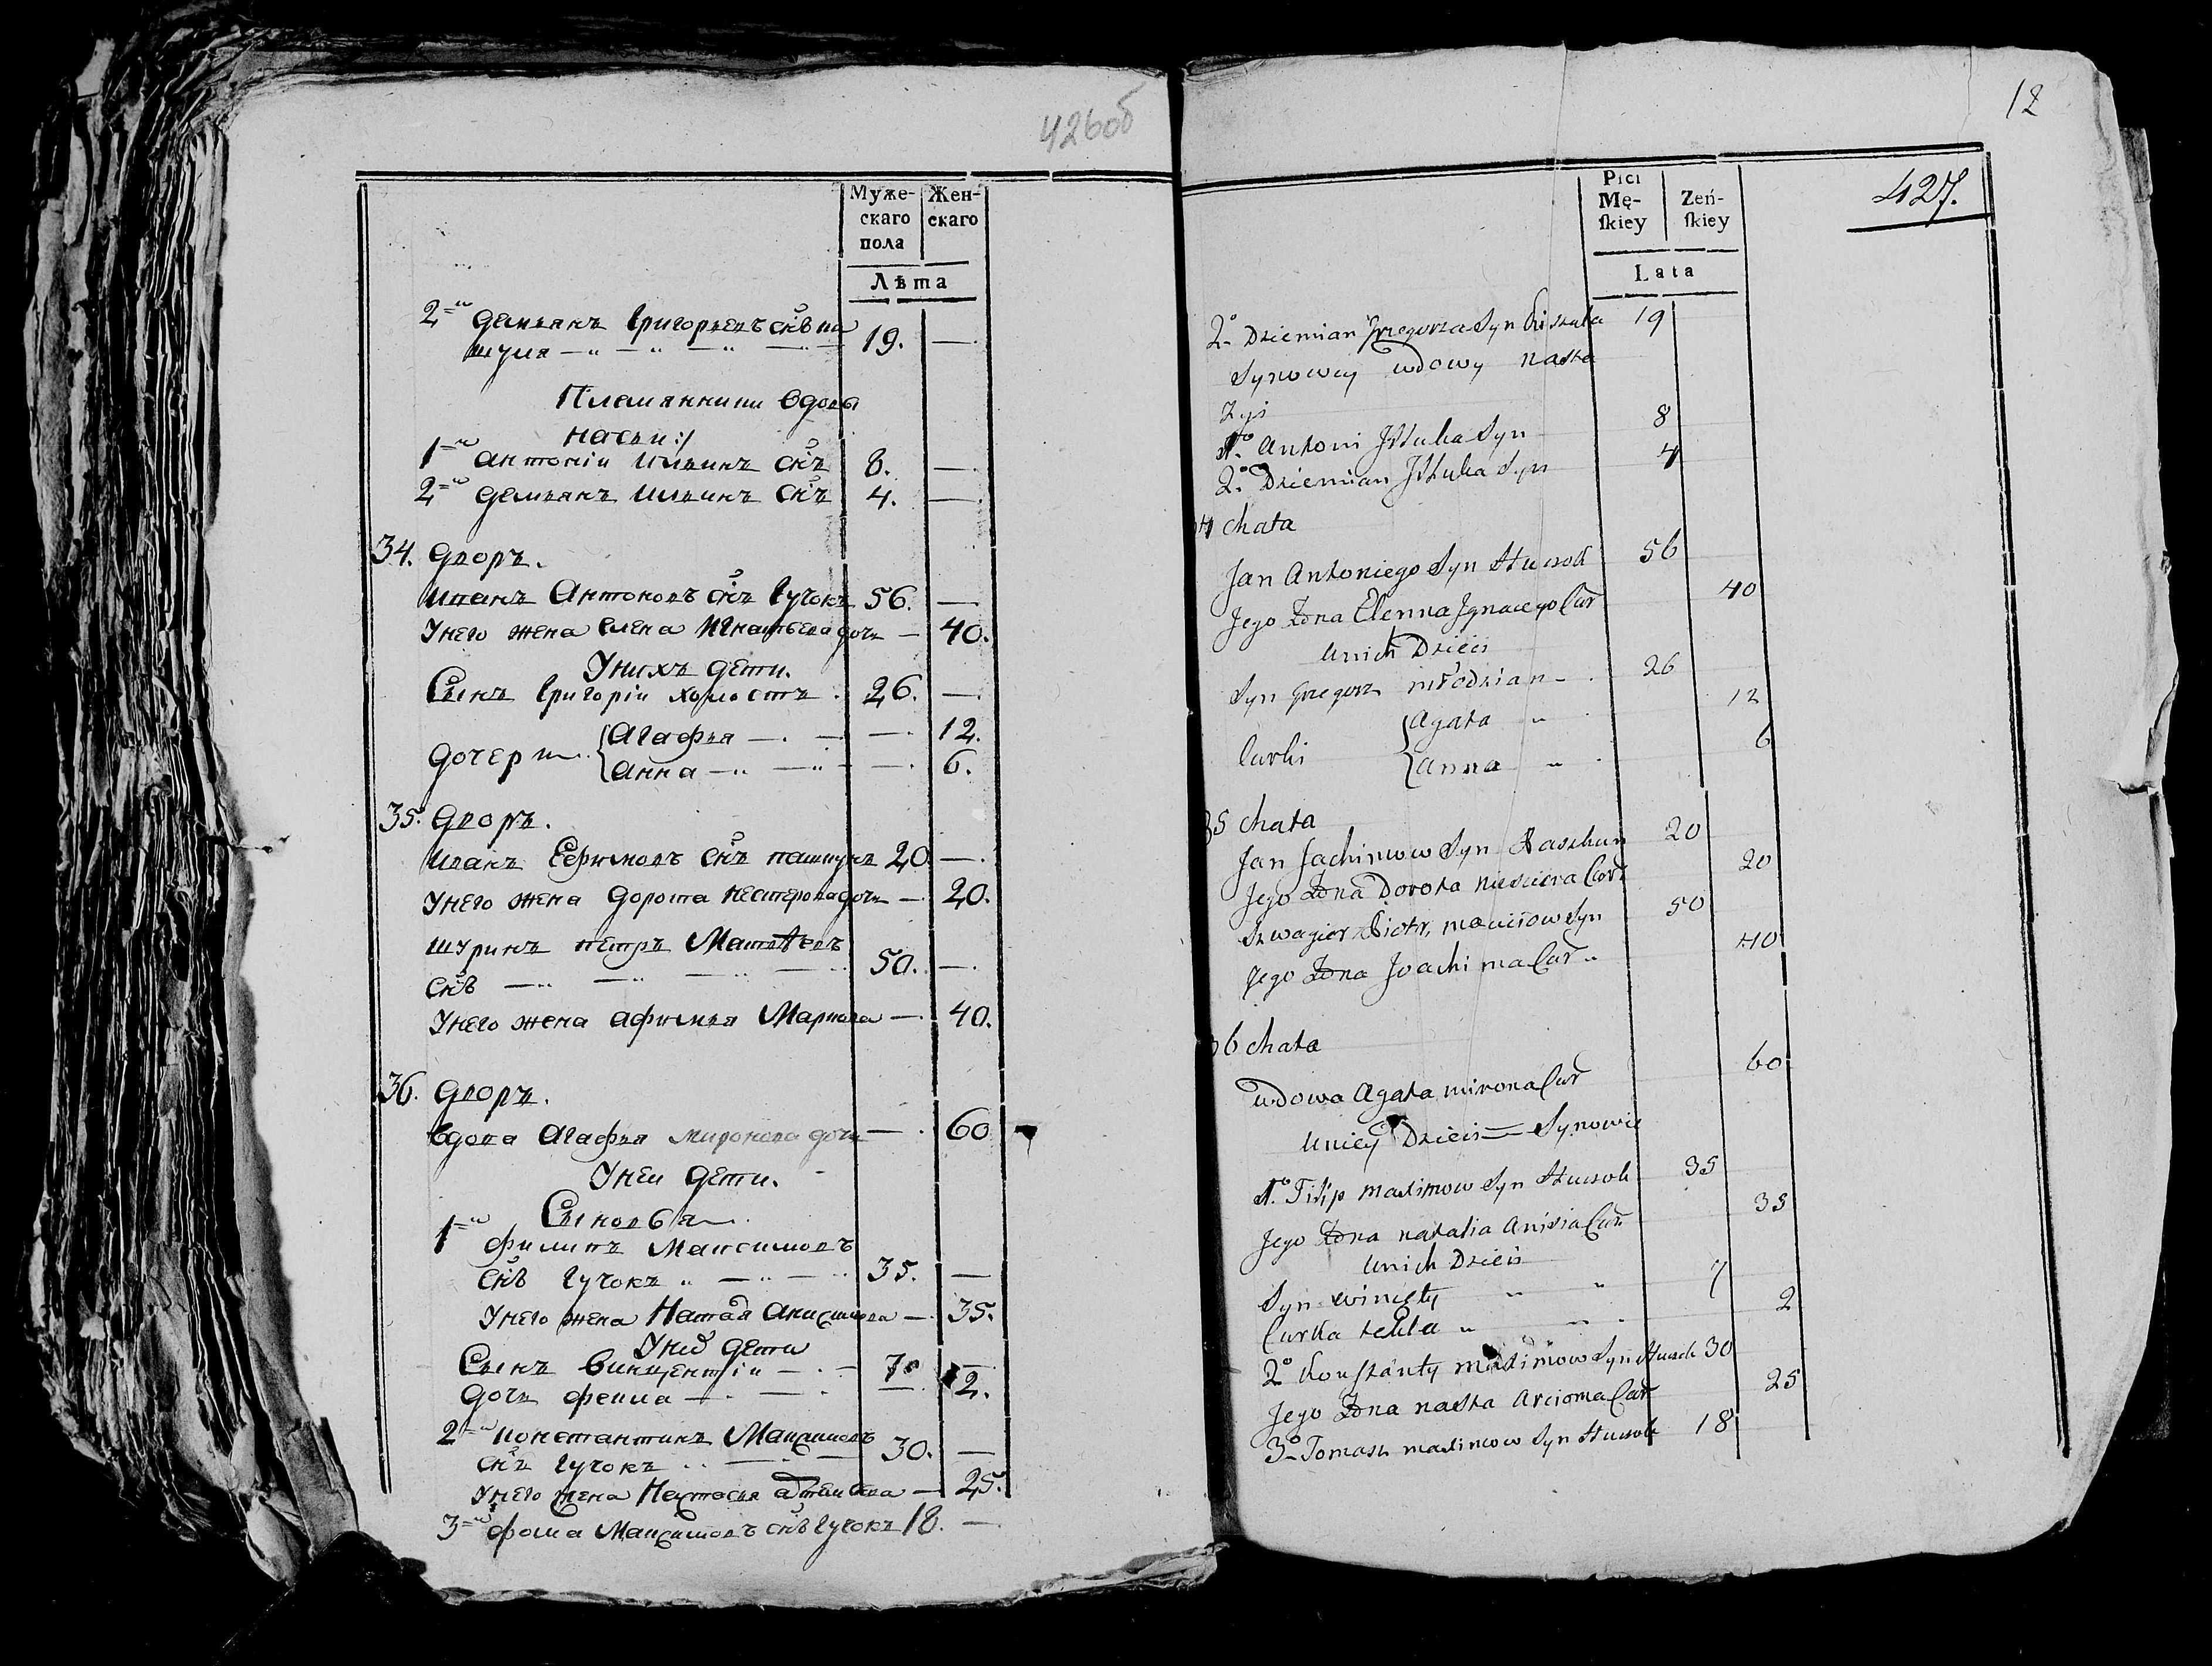 426об
Муже-
скаго
пола
Жен-
скаго
Лѣта
2й Демьянъ Григорьевъ снъ
19. —
Племянники вдовы
насти:/
1й Антоній Ильинъ снъ 8. —
2й Демьянъ Ильинъ снъ 4. —
34. Дворъ.
Иванъ Антоновъ снъ Гучокъ 56. —
У него жена Елена Игнатьева дочь — 40.
У нихъ дети.
Сынъ Григорій холостъ 26. —
Дочери Агафья — 12.
Анна — 6.
35. Дворъ.
Иванъ Ефимовъ снъ пашкунъ 20. —
У него жена Дорота Нестерова дочь — 20.
шуринъ Петръ Матвѣевъ
снъ — 50. —
У него жена Афимья Маркова — 40.
36. Дворъ.
Вдова Агафья Миронова дочь — 60
У неи дети.
Сыновья
1й Филипъ Максимовъ
снъ Гучокъ 35. —
У него жена Натал Анисимова — 35.
У них дети
Сынъ Винцентіи — 7. —
Дочь Фекла — 2.
2й Константинъ Максимовъ
снъ Гучокъ 30. —
У него жена Настасья — 25.
3й Фома Максимовъ снъ Гучокъ 18. —
12
427.
Płci
Mę-
ſkiey
Zeń-
ſkiey
Lata
2o Dziemian Grzegorza Syn 19
Synowcy wdowy Nasta
zyi
1o Antoni Syn 8
2o Dziemian Syn 4
34 chata
Jan Antoniego Syn Huczok 56
Jego Żona Elenna Jgnacego Cur 40
Unich Dzieci
Syn Grzegorz młodzian 26
Curki Agata 12
Anna 6
35 chata
Jan Jachimow Syn Paszkun 20
Jego Żona Dorota Cur 20
Szwagier Piotr, Syn 50
Jego Żona Joachima Cur 40
36 chata
wdowa Agata mirona Cur 60
Uniey Dzieci — Synowie
1o Filip maximow Syn Huczok 35
Jego Żona natalia Anisia Cur 35
Unich Dzieci
Syn winęty 7
Curka tekla 2
2o Konstanty maximow Syn Huczok 30
Jego Żona nasta Arcioma Cur 25
3o Tomasz maximow Syn Huczok 18